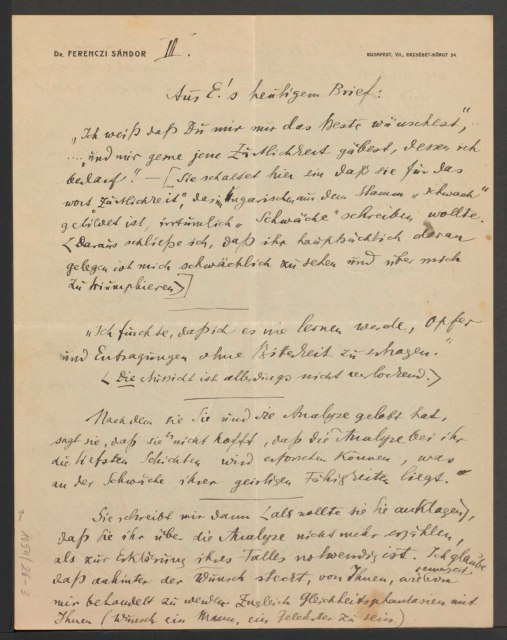 Dr. FERENCZI SÁNDOR III.
BUDAPEST, VII., ERZSÉBET-KÖRUT 54.
Aus E.'s heutigem Brief:
„Ich weiß daß Du mir nur das Beste wünschest“,
.... „und mir gerne jene Zärtlichkeit gäbest, deren ich
bedarf“! — [Sie schaltet hier ein daß sie für das
Wort „Zärtlichkeit“, das im Ungarischen aus dem Stamm „schwach“
gebildet ist, irrtümlich „Schwäche“ schreiben wollte.
(Daraus schließe ich, daß ihr hauptsächlich daran
gelegen ist mich schwächlich zu sehen und über mich
zu triumphieren)]
„Ich fürchte, daß ich es nie lernen werde, Opfer
und Entsagungen ohne Bitterkeit zu ertragen.“
(Die Aussicht ist allerdings nicht verlockend.)
Nachdem sie Sie und die Analyse gelobt hat,
sagt sie, daß sie „nicht hofft, daß die Analyse bei ihr
die tiefsten Schichten wird erforschen können, was
an der Schwäche ihrer geistigen Fähigkeiten liegt.“
Sie schreibt mir dann (als wollte sie Sie anklagen),
daß Sie ihr über die Analyse nicht mehr erzählen,
als zur Erklärung ihres Falles notwendig ist. Ich glaube
daß dahinter der Wunsch steckt, von Ihnen,
mir behandelt zu werden. Zugleich Gleichheitsphantasien mit
Ihnen (Wunsch ein Mann, ein Gelehrter zu sein)
2